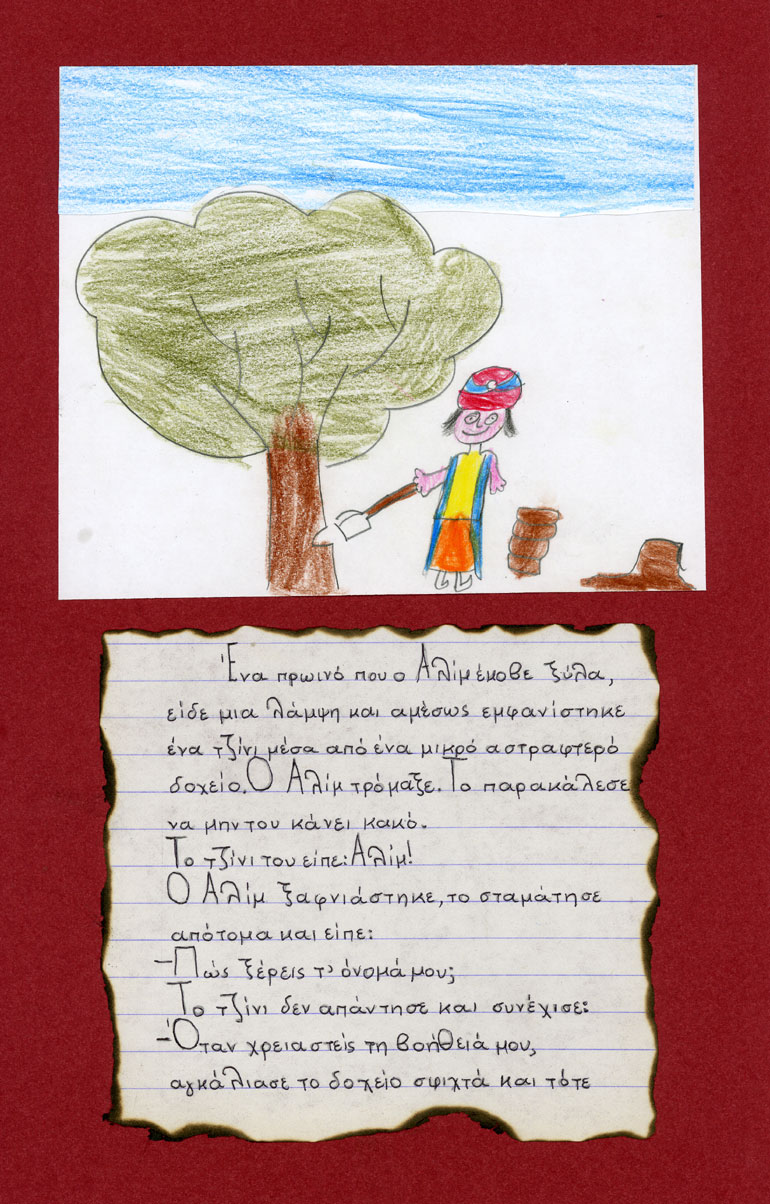 Ένα πρωινό που ο Αλίμ έκοβε ξύλα,
είδε μια λάμψη και αμέσως εμφανίστηκε
ένα τζίνι μέσα από ένα μικρό αστραφτερό
δοχείο. Ο Αλίμ τρόμαξε. Το παρακάλεσε
να μην του κάνει κακό.
Το τζίνι του είπε: Αλίμ!
Ο Αλίμ ξαφνιάστηκε, το σταμάτησε
απότομα και είπε:
-Πώς ξέρεις τ' όνομά μου;
Το τζίνι δεν απάντησε και συνέχισε:
-Όταν χρειαστείς τη βοήθειά μου,
αγκάλιασε το δοχείο σφιχτά και τότε